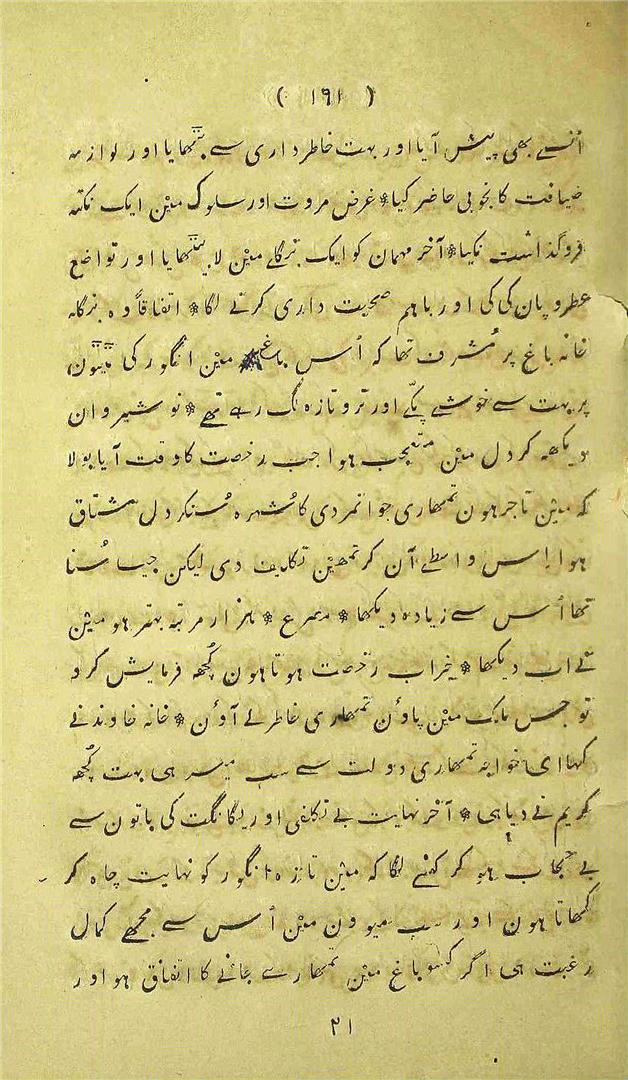 ( ۱۶۱ )
اُنسے بھی پیش آیا اور بہت خاطرداری سے بٹھایا اور لوازمہ
ضیافت کا بخوبی حاضر کیا * غرض مروت اور سلوک مین ایک نکتہ
فروگذاشت نکیا * آخر مہمان کو ایک بنگلے مین لا بیٹھایا اور تواضع
عطر و پان کی کی اور باہم صحبت داری کرنے لگا * اتفاقاً وہ بنگلہ
خانہ باغ پر مُشرف تھا کہ اُس باغ مین انگور کی ٹٹیون
پر بہت سے خوشے پکّے اور تر و تازہ لگ رہے تھے * نوشیروان
دیکھہ کر دل مین متعجب ہوا جب رخصت کا وقت آیا بولا
کہ مین تاجر ہون تمھاری جوانمردی کا شُہرہ سُنکر دل مشتاق
ہوا اِس واسطے آن کر تمھین تکلیف دی لیکن جیسا سُنا
تھا اُس سے زیادہ دیکھا * مصرع * ہزار مرتبہ بہتر ہو مین
نے اب دیکھا * خیر اب رخصت ہوتا ہون کُچھہ فرمایش کرو
تو جس مُلک مین پاوُن تمھاری خاطر لے آوُن * خانہ خاوند نے
کہا ای خواجہ تمھاری دولت سے سب میسر ہی بہت کُچھہ
کریم نے دیا ہی * آخر نہایت بے تکلفی اور یگانگت کی باتون سے
بے حجاب ہو کر کہنے لگا کہ مین تازہ انگور کو نہایت چاہ کر
کھاتا ہون اور سب میوون مین اُس سے مجھے کمال
رغبت ہی اگر کسو باغ مین تمھارے جانے کا اتفاق ہو اور
۲۱